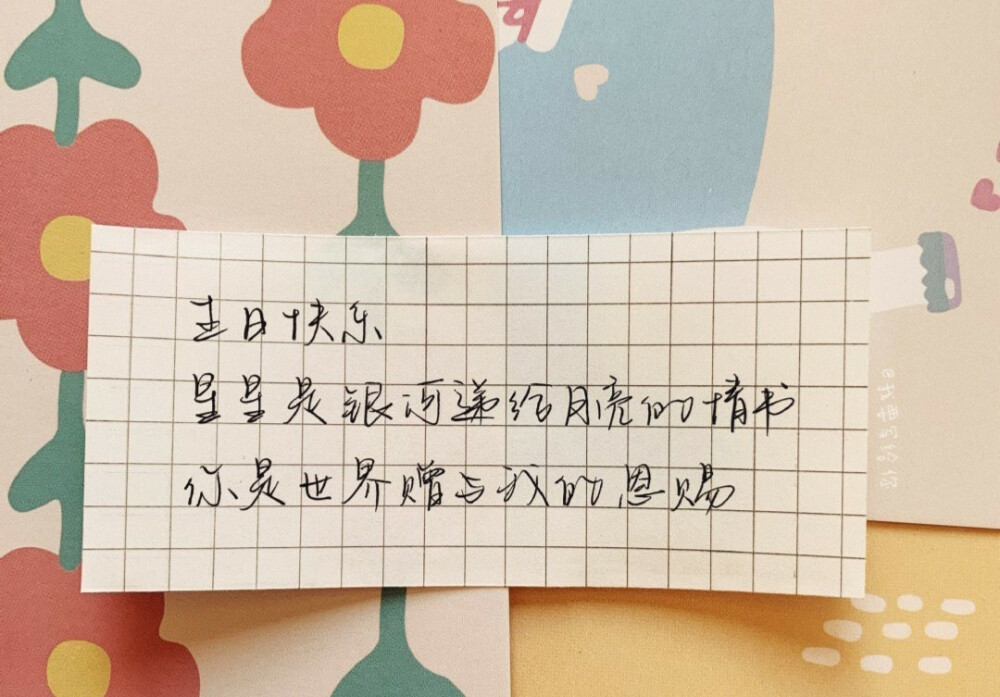 生日快乐
星星是银河递给月亮的情书
你是世界赠与我的恩赐